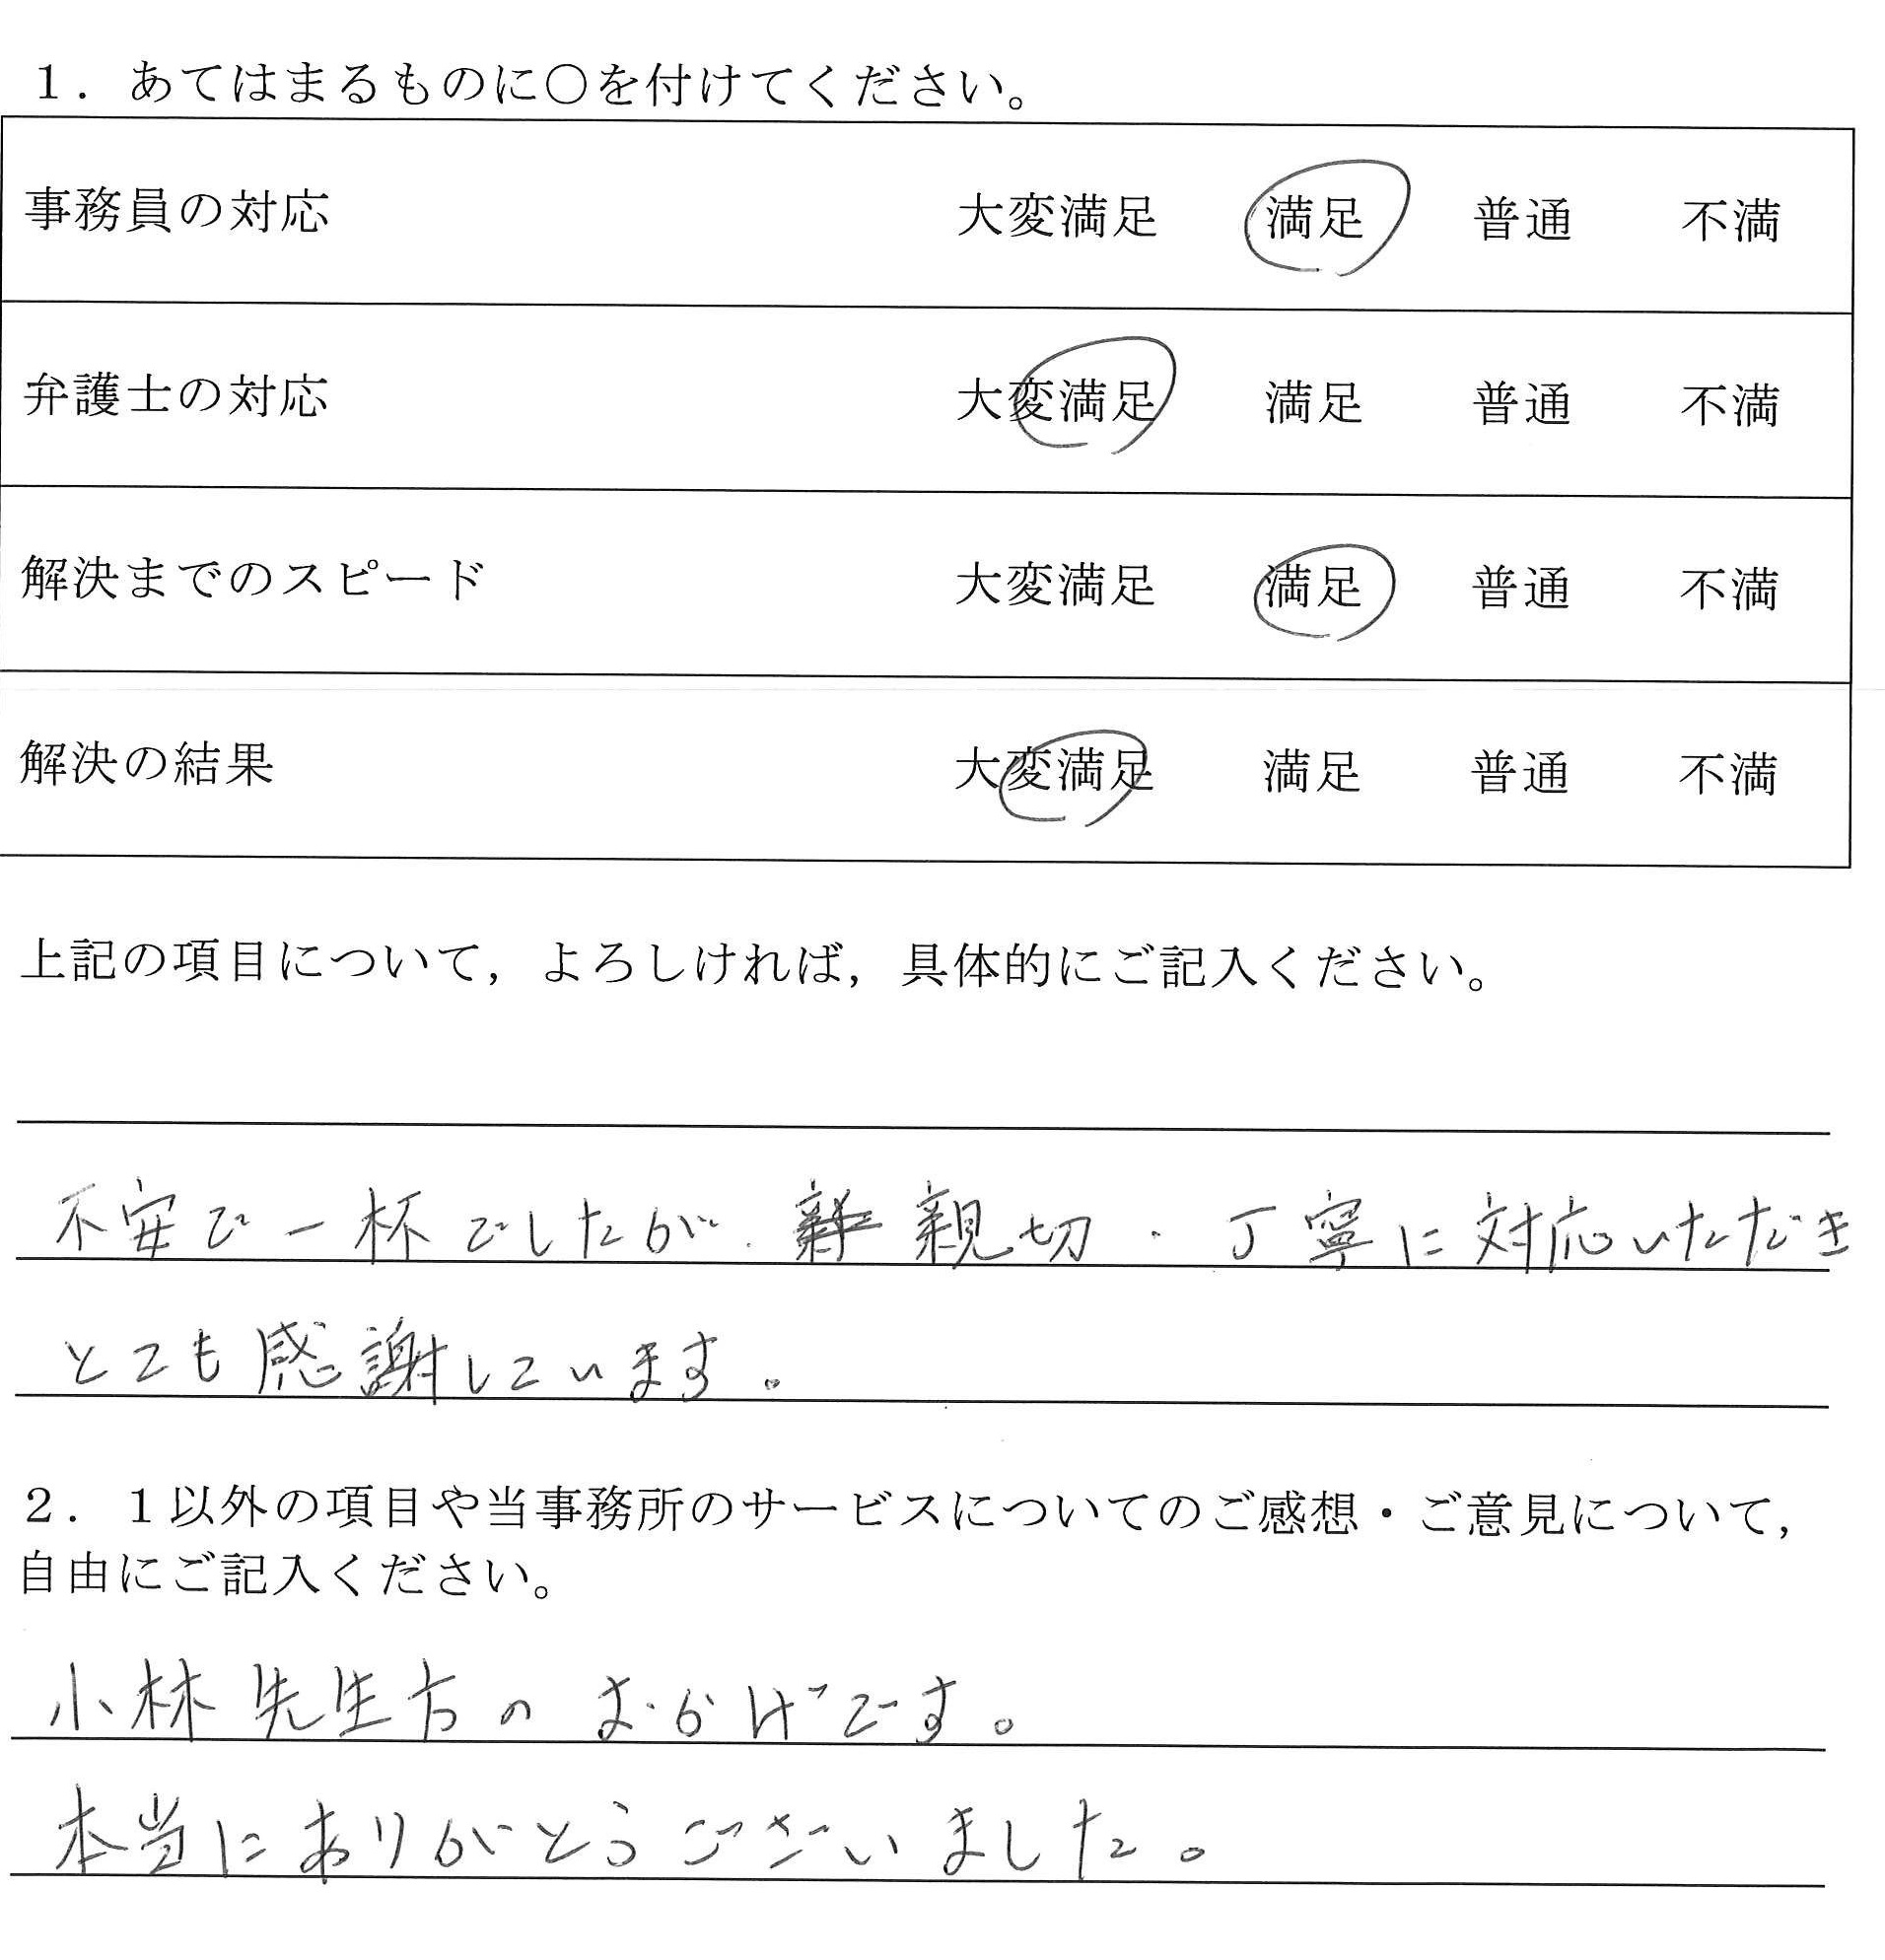 1．あてはまるものに○を付けてください。
事務員の対応　大変満足　満足　普通　不満
弁護士の対応　大変満足　満足　普通　不満
解決までのスピード　大変満足　満足　普通　不満
解決の結果　大変満足　満足　普通　不満
上記の項目について，よろしければ，具体的にご記入ください。
不安で一杯でしたが、親切・丁寧に対応いただき
とても感謝しています。
2．1以外の項目や当事務所のサービスについてのご感想・ご意見について，
自由にご記入ください。
小林先生方のおかげです。
本当にありがとうございました。